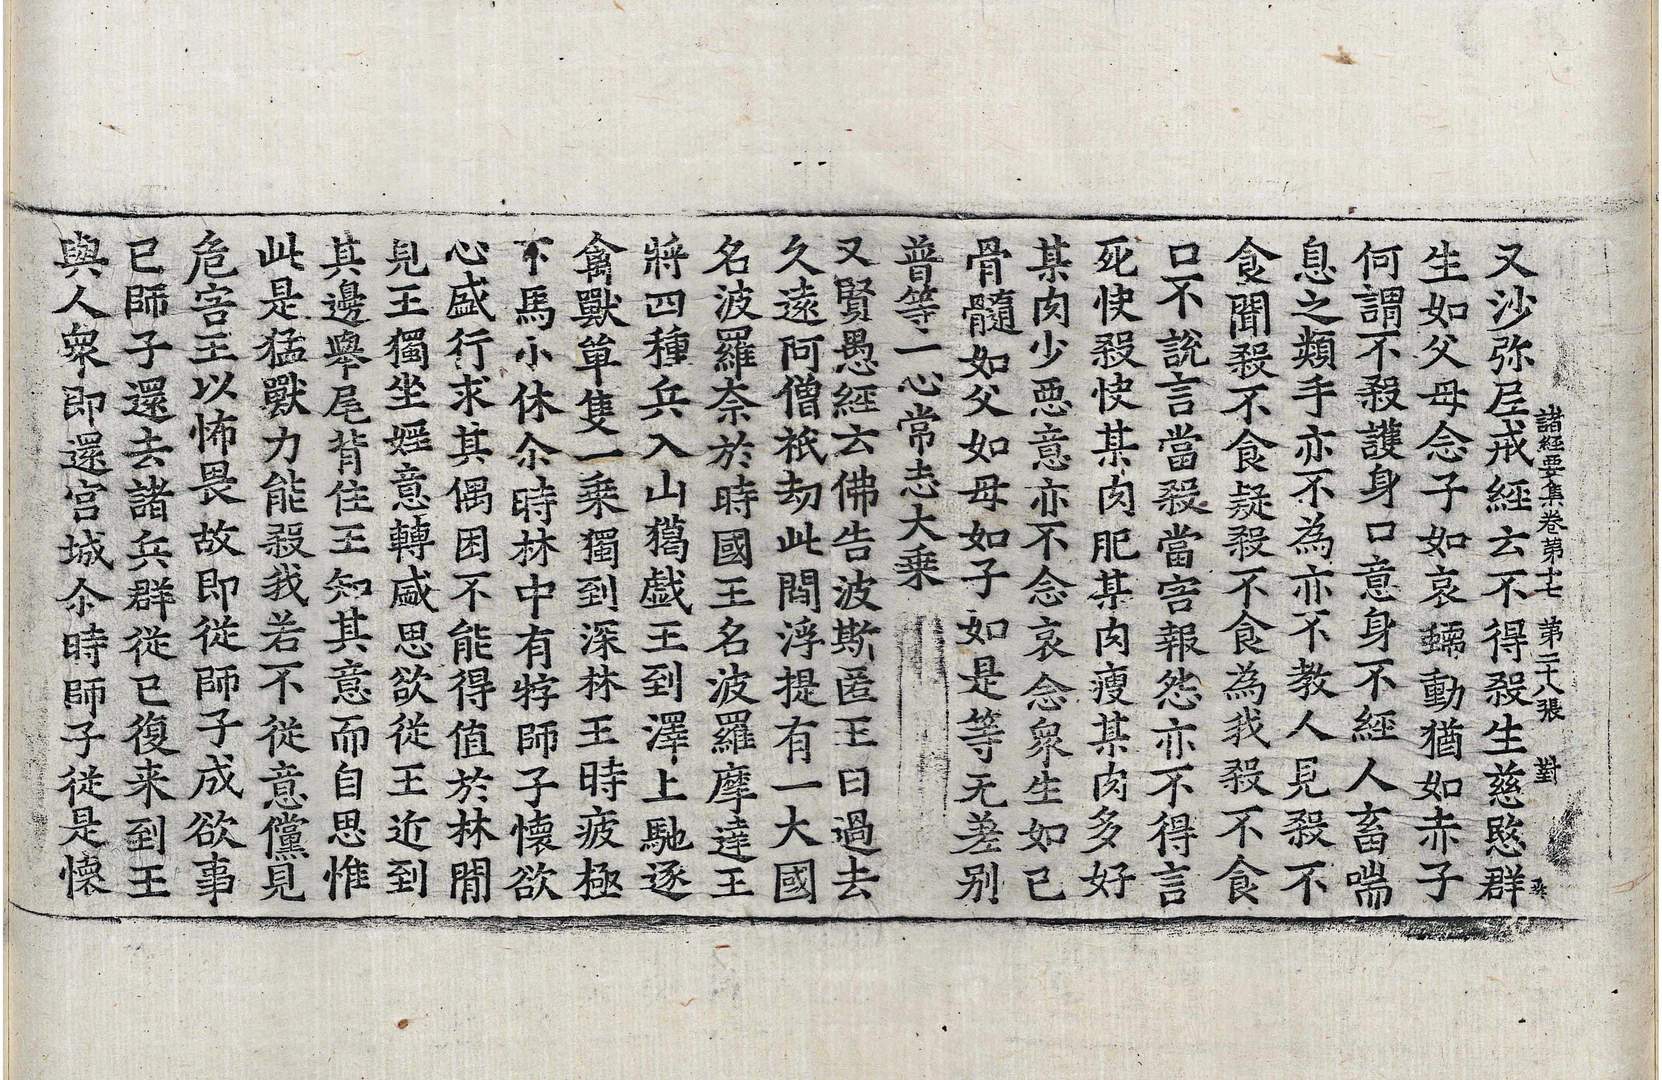 諸經要集卷第十七 第二十八張 對
又沙弥尼戒經云不得殺生慈愍群
生如父母念子如哀蠕動猶如赤子
何謂不殺護身口意身不經人畜喘
息之類手亦不為亦不教人見殺不
食聞殺不食疑殺不食為我殺不食
口不說言當殺當害報怨亦不得言
死快殺快某肉肥某肉瘦某肉多好
某肉少惡意亦不念哀念衆生如己
骨髓如父如母如子如是等无差别
普等一心常志大乗
又賢愚經云佛告波斯匿王曰過去
久遠阿僧祇劫此閻浮提有一大國
名波羅奈於時國王名波羅摩達王
將四種兵入山獦戯王到澤上馳逐
禽獸單隻一乗獨到深林王時疲極
下馬小休尒時林中有牸師子懷欲
心盛行求其偶困不能得值於林閒
見王獨坐婬意轉盛思欲從王近到
其邊舉尾背住王知其意而自思惟
此是猛獸力能殺我若不從意儻見
危害王以怖畏故即從師子成欲事
已師子還去諸兵群從已復来到王
與人衆即還宫城尒時師子從是懷